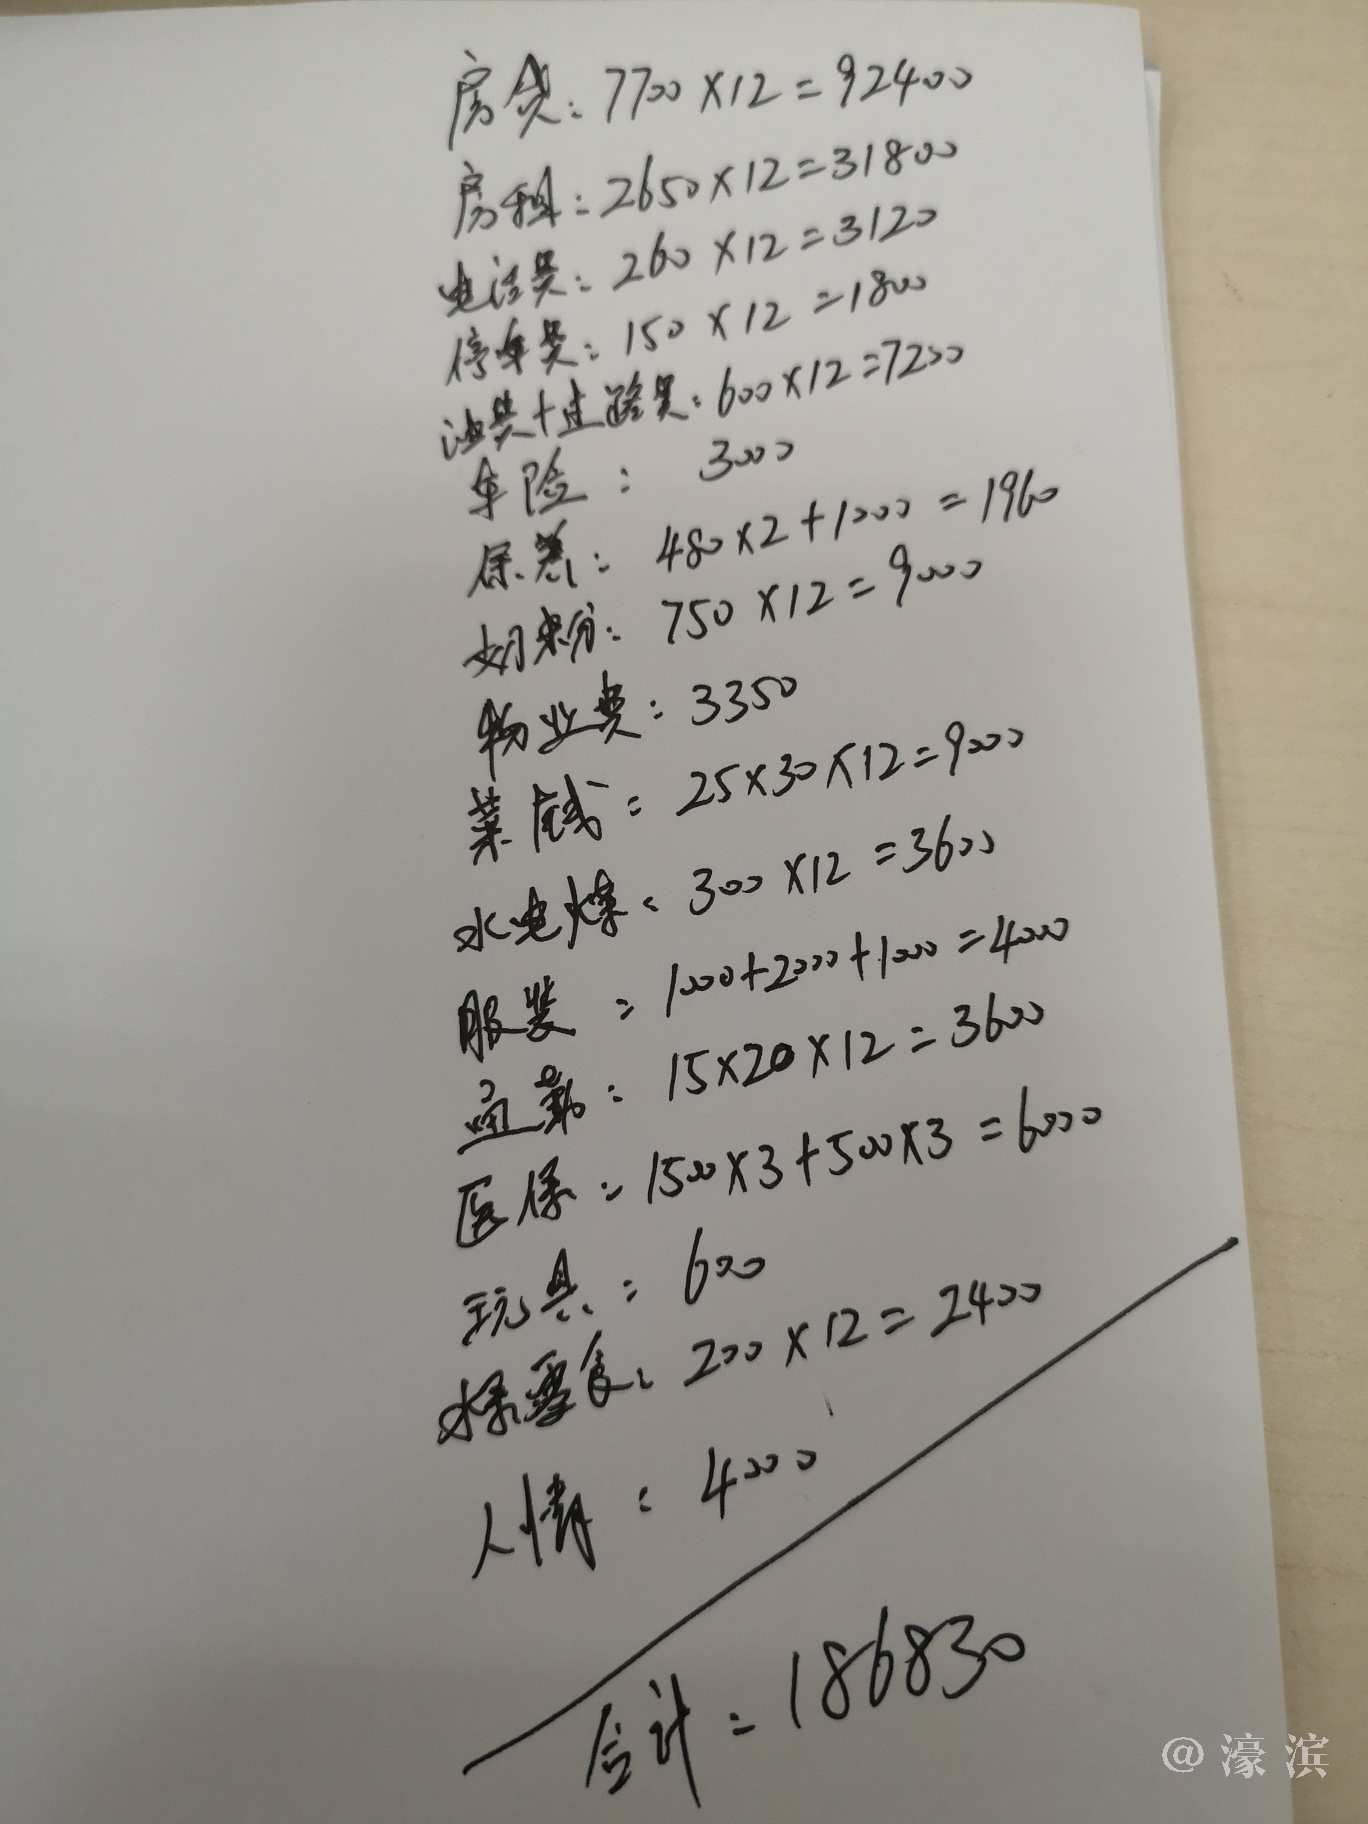 房贷：7700×12=92400
房租：2650×12=31800
电话费：260×12=3120
停车费：150×12=1800
油费+过路费：600×12=7200
车险：3000
保养：480×2+1000=1960
奶粉：750×12=9000
物业费：3350
菜钱：25×30×12=9000
水电煤：300×12=3600
服装：1000+2000+1000=4000
通勤：15×20×12=3600
医保：1500×3+500×3=6000
玩具：600
水果零食：200×12=2400
人情：4000
合计：186830
@濠滨